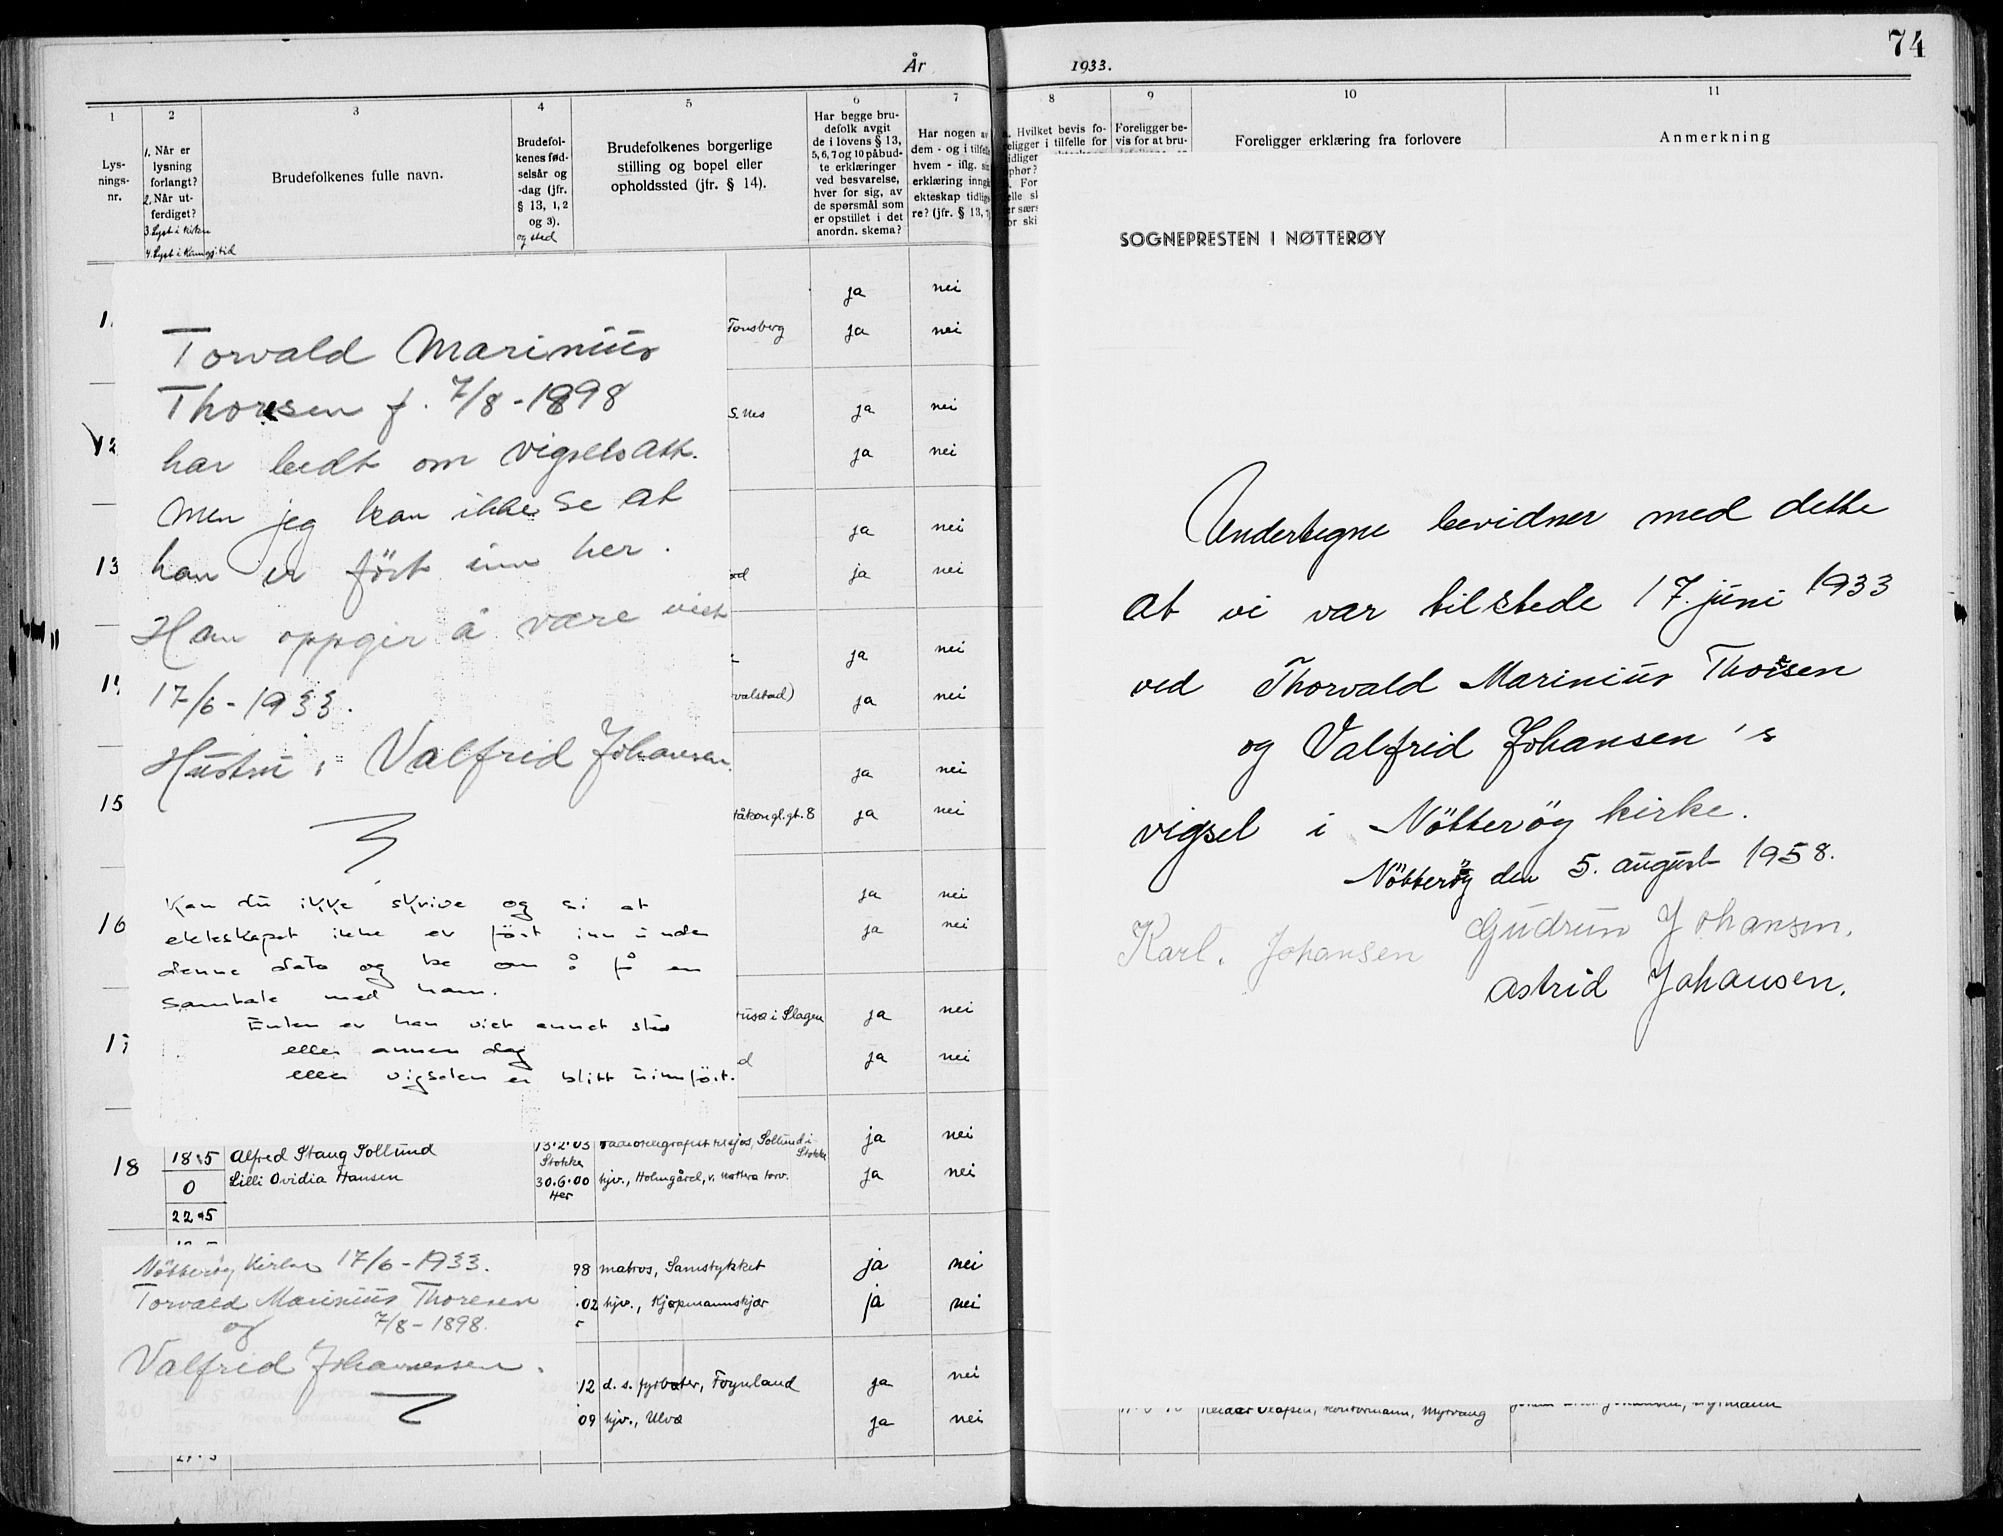 74
År 1933.
1 2 3 4 5 6 7 8 9 10 11
Lys-
nings-
nr.
1. Når er
lysning
forlangt?
2. Når ut-
ferdiget?
3. Lyst i kirken
Brudefolkenes fulle navn.
Brudefol-
kenes fød-
selsår og
-dag (jfr.
§ 13, 1, 2
og 3).
og sted
Brudefolkenes borgerlige
stilling og bopel eller
opholdssted (jfr. § 14).
Har begge bru-
defolk avgit
de i lovens § 13,
5, 6, 7 og 10 påbud-
te erklæringer
ved besvarelse,
hver for sig, av
de spørsmål som
er opstillet i det
anordn. skema?
Har nogen av
dem - og i tilfelle
hvem - iflg. si
erklæring inngå
ekteskap tidlig
re? (jfr. § 13, 7)
Hvilket bevis fo-
religger i tilfelle for
Foreligger be-
vis for at bru-
Foreligger erklæring fra forlovere
Anmerkning
Torvald Marinius
Thoresen f. 7/8 - 1898
har bedt om vigselsatt.
Men jeg kan ikke se at
han er ført inn her.
Han oppgir å være viet
17/6 - 1933.
Hustru: Valfrid Johansen.
Kan du ikke skrive og si at
ekteskapet ikke er ført inn under
denne dato og be om å få en
samtale med ham.
Enten er han viet annet sted
eller annen dag
eller vigselen er blitt uinnført.
Tønsberg ja nei
ja nei
12 S. Nes ja nei
ja nei
13 ja nei
ja nei
ja nei
valstad) ja nei
15 ja nei
Håkon gl. gt. 8 ja nei
16 ja nei
ja nei
17 rusa i Slagen ja nei
ja nei
18 18/5 Alfred Stang Sollund 13.2.03 Stokke radiotelegrafist tilsjøs, Sollund i Stokke ja nei
0 Lilli Ovidia Hansen 30.6.00 Her hjv., Holmgård, v. Nøtterø torv. ja nei
22.5
98 matros, Samstykket ja nei
.02 hjv., Kjøpmannskjær ja nei
12 d. s. fyrbøter, Føynland ja nei
09 hjv., Ulvø ja nei
Nøtterøy Kirke 17/6 - 1933.
Torvald Marinius Thoresen
7/8 - 1898.
og
Valfrid Johannessen.
SOGNEPRESTEN I NØTTERØY
Undertegne bevidner med dette
at vi var tilstede 17. juni 1933
ved Thorvald Marinius Thoresen
og Valfrid Johansen's
vigsel i Nøtterøy kirke.
Nøtterøy den 5. august 1958.
Gudrun Johansen.
Karl. Johansen
Astrid Johansen.
Reidar Olafsen, kontormann, Myrvang